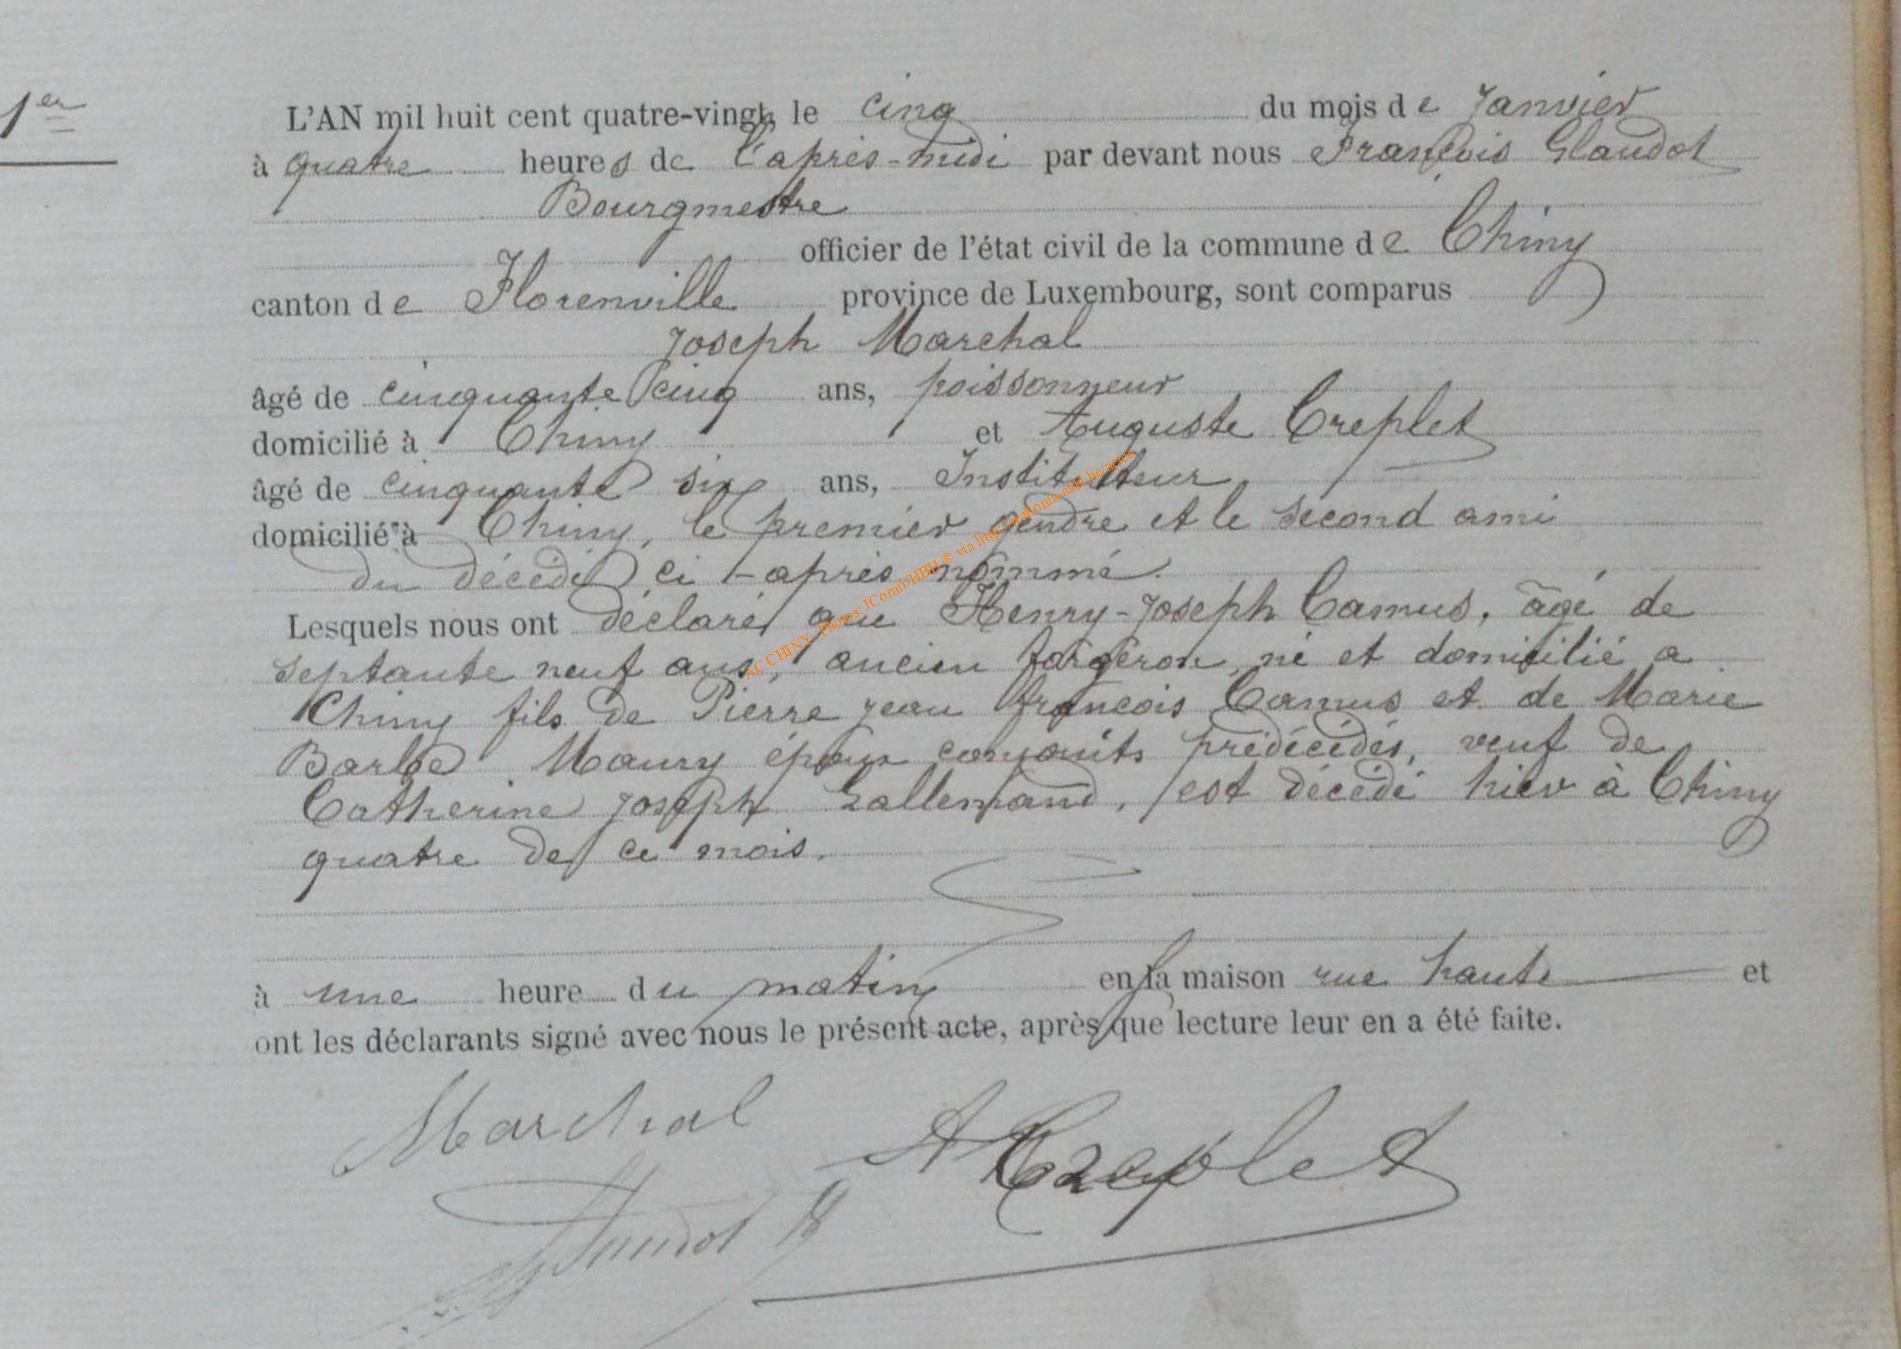 1er
L'AN mil huit cent quatre-vingt, le cinq du mois de Janvier
à quatre heures de l'après-midi par devant nous François Glaudot
Bourgmestre
officier de l'état civil de la commune de Chiny
canton de Florenville province de Luxembourg, sont comparus
Joseph Marchal
âgé de cinquante cinq ans, poissonneur
domicilié à Chiny et Auguste Creplet
âgé de cinquante six ans, Instituteur
domicilié à Chiny, le premier gendre et le second ami
du décédé ci-après nommé.
Lesquels nous ont déclaré que Henry-Joseph Camus, âgé de
septante neuf ans, ancien forgeron, né et domicilié a
Chiny fils de Pierre jean françois Camus et de Marie
Barbe Maury époux conjoints prédécédés, veuf de
Catherine joseph Lallemand, est décédé hier à Chiny
quatre de ce mois.
à une heure du matin en la maison rue haute et
ont les déclarants signé avec nous le présent acte, après que lecture leur en a été faite.
Marchal
A Creplet
Glaudot
AC CHINY, Photos: JComil HBH ® via